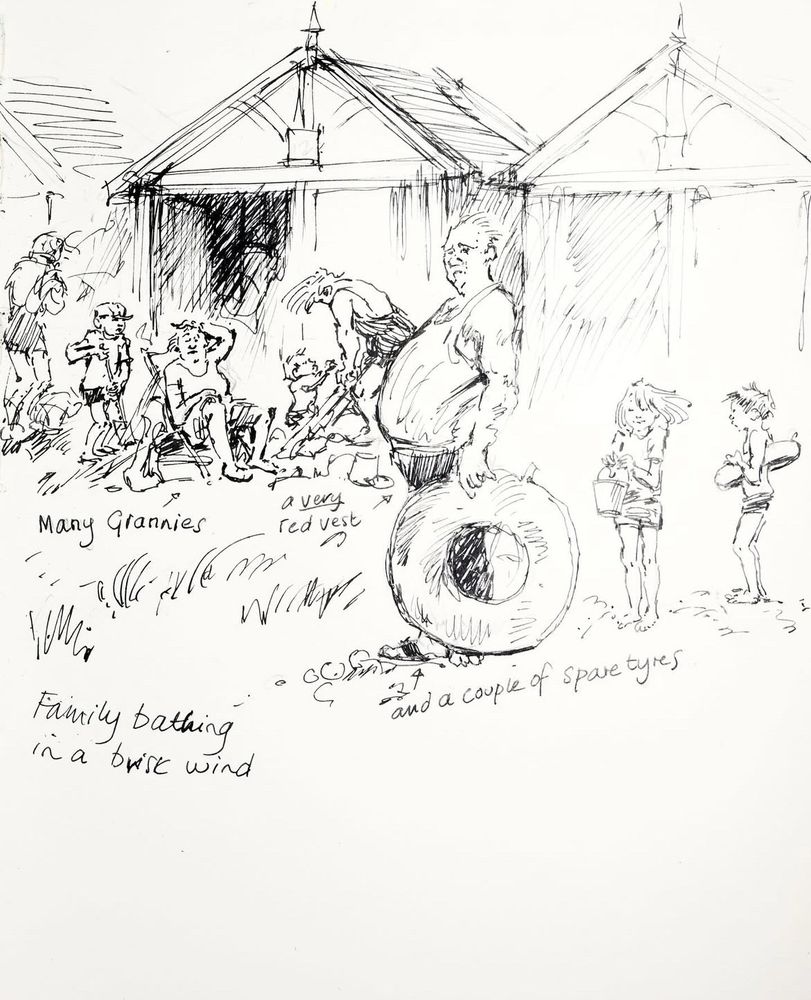 Many Grannies
a very
red vest
and a couple of spare tyres
Family bathing
in a brisk wind